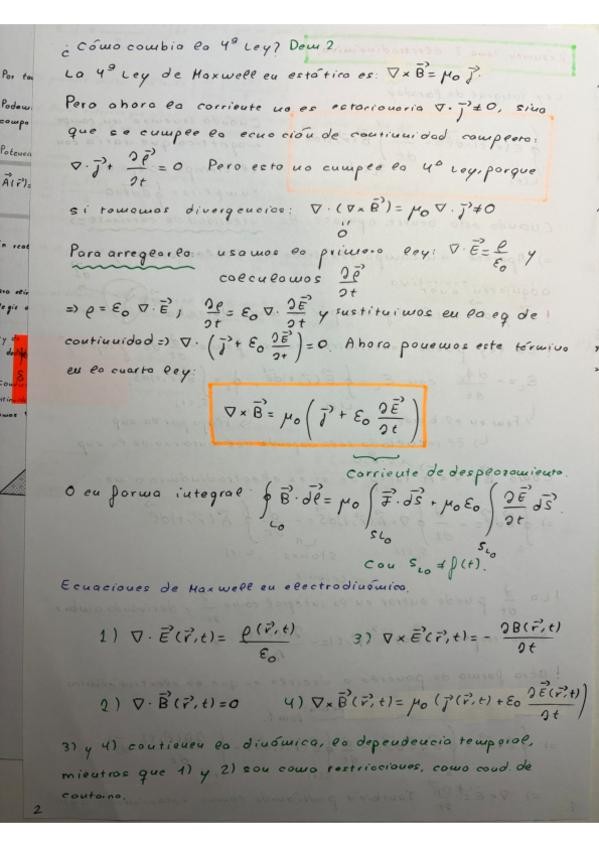 ¿Cómo cambia la 4ª Ley? Dem 2
La 4ª Ley de Maxwell en estática es: ∇×B⃗ = μ₀ j⃗.
Pero ahora la corriente no es estacionaria ∇·j⃗ ≠ 0, sino
que se cumple la ecuación de continuidad completa:
∇·j⃗ + ∂ρ/∂t = 0 Pero esto no cumple la 4ª Ley, porque
si tomamos divergencias: ∇·(∇×B⃗) = μ₀ ∇·j⃗ ≠ 0
0
Para arreglarlo usamos la primera ley: ∇·E⃗ = ρ/ε₀ y
calculamos ∂ρ/∂t
⇒ ρ = ε₀ ∇·E⃗; ∂ρ/∂t = ε₀ ∇·∂E⃗/∂t y sustituimos en la eq de
continuidad ⇒ ∇·(j⃗ + ε₀ ∂E⃗/∂t) = 0. Ahora ponemos este término
en la cuarta ley:
∇×B⃗ = μ₀ (j⃗ + ε₀ ∂E⃗/∂t)
corriente de desplazamiento.
O en forma integral: ∮_{L₀} B⃗·dl⃗ = μ₀ ∫_{SL₀} j⃗·ds⃗ + μ₀ε₀ ∫_{SL₀} ∂E⃗/∂t ds⃗.
Con SL₀ ≠ f(t).
Ecuaciones de Maxwell en electrodinámica.
1) ∇·E⃗(r⃗,t) = ρ(r⃗,t)/ε₀ 3) ∇×E⃗(r⃗,t) = - ∂B(r⃗,t)/∂t
2) ∇·B⃗(r⃗,t) = 0 4) ∇×B⃗(r⃗,t) = μ₀ (j⃗(r⃗,t) + ε₀ ∂E⃗(r⃗,t)/∂t)
3) y 4) contienen la dinámica, la dependencia temporal,
mientras que 1) y 2) son como restricciones, como cond. de
contorno.
2